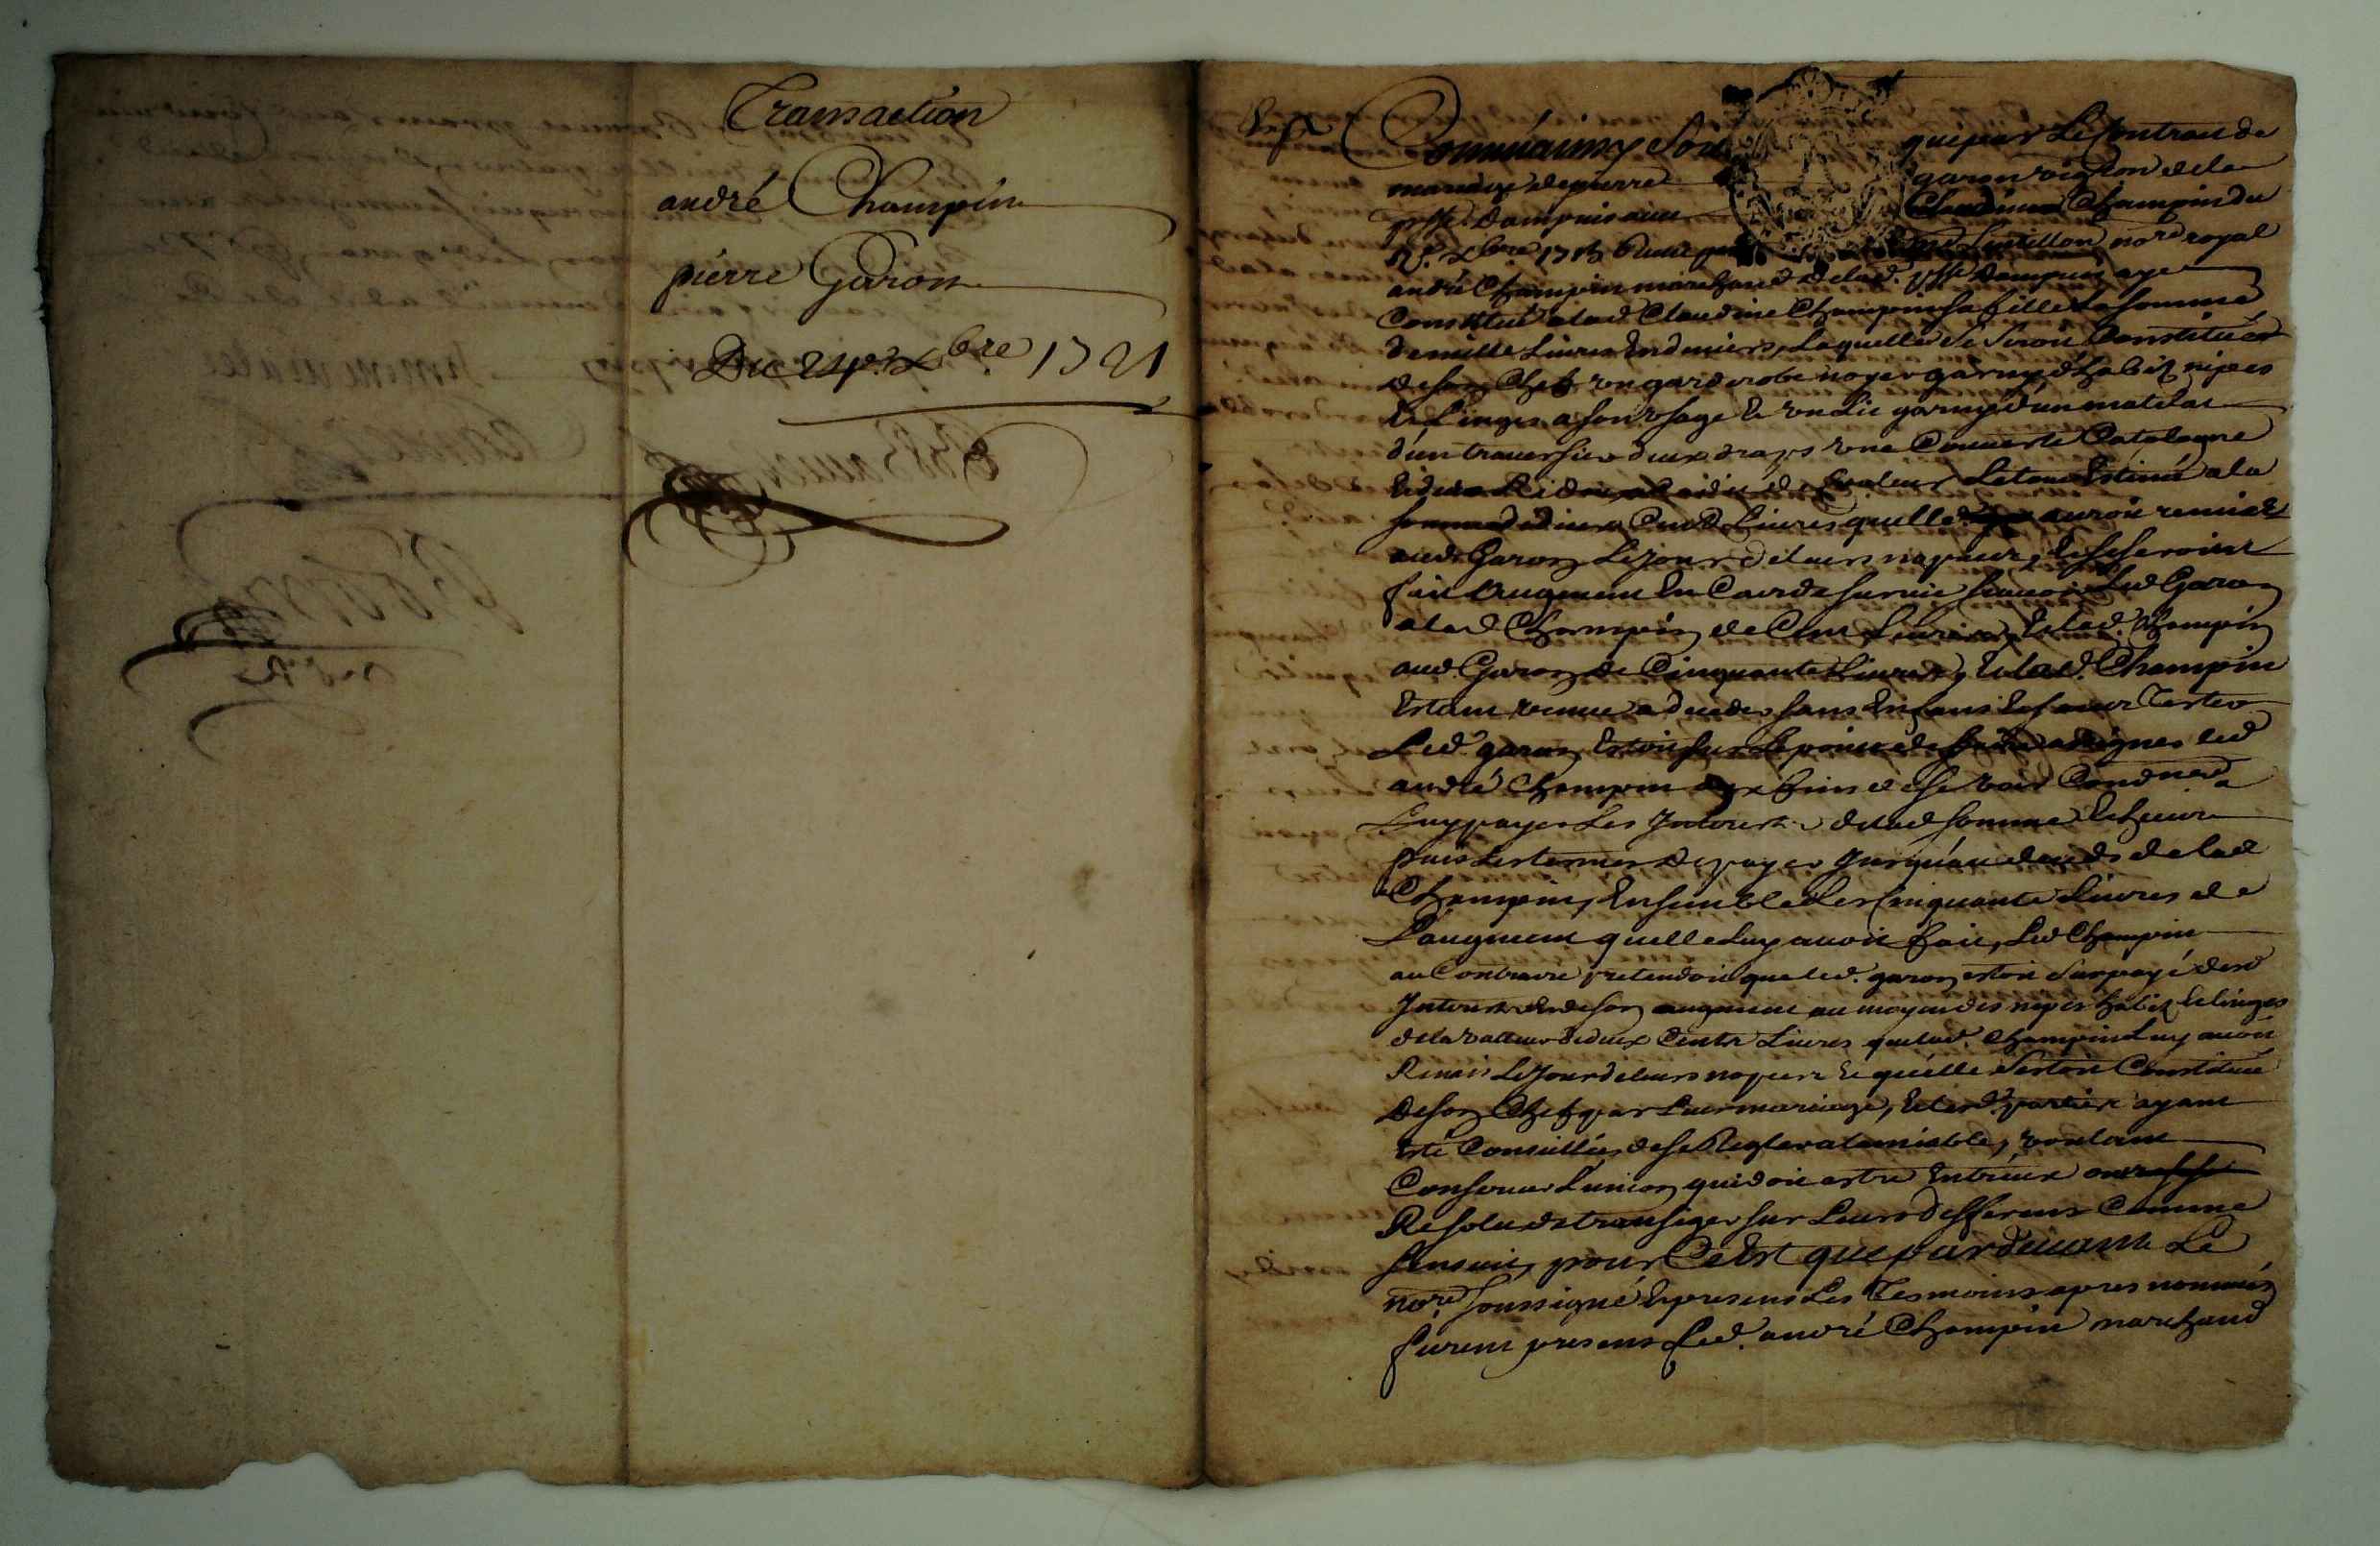 Transaction
andré Champin
pierre Garon
Du 24e Xbre 1721
Comme ainsy soit que par Le Contrat de
mariage de pierre garon vigneron de la
psse Dampuis avec Claudine Champin du
Xbre 1715 nore royal
andré Champin marchand de lad. psse dampuis aye
Constitué a lad Claudine Champin sa fille La somme
de mille Livres En deniers, Laquelle se seroit Constituée
de son Chef un garderobe noyer garny d'habit nipes
Et Linges a son usage Et un Lit garny d'un matelat
d'un traversier deux draps une Couverte Catalogne
Le tout Estimé a la
somme de deux Cent Livres quelle auroit remise
aud. Garon Le jour de Leurs nopces, Et se seroint
fait augment En Cas de survie scavoir Led Garon
a lad Champin de Cent Livres, Et lad. Champin
aud. Garon de Cinquante Livres, Et lad. Champin
Estant venue a deceder sans Enfans Et sans Tester
Led. garon Estoit sur Le point de faire assigner led
andré Champin aux fins de se voir Condner a
Luy payer Les Interests de lad somme Echeuus
puis Les termes de payer jusqu'au deceds de lad
Champin, Ensemble Les Cinquante Livres de
L'augment quelle Luy avoit fait, Led Champin
au Contraire pretendoit que led. garon estoit surpayé desd
Interests Et de son augment au moyen des nipes habit Et linges
de la valleur de deux Cents Livres que lad. Champin Luy avoit
Remis Le jour de leurs nopces Et qu'elle s'estoit Constitué
de son Chef par Leur mariage, Et lesd. parties ayant
Esté Conseillées de se Regler a lamiable, voulant
Conserver L'union qui doit estre Entr'eux ont
Resolu de transiger sur Leurs differens Comme
sensuit, pour Ce Est que pardevant Le
nore soussigné Et presens Les Tesmoins apres nommés
furent presens Led. andré Champin marchand